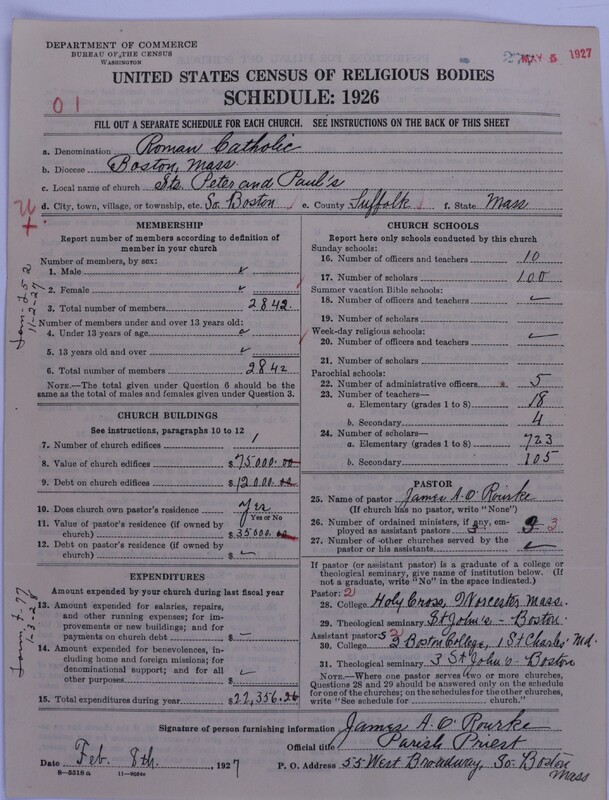 DEPARTMENT OF COMMERCE
BUREAU OF THE CENSUS
WASHINGTON
MAY 5 1927
UNITED STATES CENSUS OF RELIGIOUS BODIES
SCHEDULE: 1926
01
FILL OUT A SEPARATE SCHEDULE FOR EACH CHURCH. SEE INSTRUCTIONS ON THE BACK OF THIS SHEET
a. Denomination Roman Catholic
b. Diocese Boston, Mass.
c. Local name of church Sts. Peter and Paul's
d. City, town, village, or township, etc. So. Boston e. County Suffolk f. State Mass
MEMBERSHIP
Report number of members according to definition of
member in your church
Number of members, by sex:
1. Male ✓
2. Female ✓
3. Total number of members 2842.
Number of members under and over 13 years old:
4. Under 13 years of age
5. 13 years old and over ✓
6. Total number of members 2842
NOTE.—The total given under Question 6 should be the
same as the total of males and females given under Question 3.
11-2-27
CHURCH BUILDINGS
See instructions, paragraphs 10 to 12
7. Number of church edifices 1
8. Value of church edifices $75000.00
9. Debt on church edifices $12000.00
10. Does church own pastor's residence Yes
Yes or No
11. Value of pastor's residence (if owned by
church) $35000.00
12. Debt on pastor's residence (if owned by
church) $
EXPENDITURES
Amount expended by your church during last fiscal year
13. Amount expended for salaries, repairs,
and other running expenses; for im-
provements or new buildings; and for
payments on church debt $
14. Amount expended for benevolences,
including home and foreign missions; for
denominational support; and for all
other purposes $
15. Total expenditures during year $22,356.26
1-3-28
CHURCH SCHOOLS
Report here only schools conducted by this church
Sunday schools:
16. Number of officers and teachers 10
17. Number of scholars 100
Summer vacation Bible schools:
18. Number of officers and teachers
19. Number of scholars
Week-day religious schools:
20. Number of officers and teachers
21. Number of scholars
Parochial schools:
22. Number of administrative officers 5
23. Number of teachers—
a. Elementary (grades 1 to 8) 18
b. Secondary 4
24. Number of scholars—
a. Elementary (grades 1 to 8) 723
b. Secondary 105
PASTOR
25. Name of pastor James A. O'Rourke
(If church has no pastor, write "None")
26. Number of ordained ministers, if any, em-
ployed as assistant pastors 3
27. Number of other churches served by the
pastor or his assistants
If pastor (or assistant pastor) is a graduate of a college or
theological seminary, give name of institution below. (If
not a graduate, write "No" in the space indicated.)
Pastor: 2
28. College Holy Cross, Worcester Mass.
29. Theological seminary St John's - Boston.
Assistant pastors 2
30. College 2 Boston College, 1 St Charles Md.
31. Theological seminary 3 St John's - Boston
NOTE.—Where one pastor serves two or more churches,
Questions 28 and 29 should be answered only on the schedule
for one of the churches; on the schedules for the other churches,
write "See schedule for church."
Signature of person furnishing information James A. O'Rourke
Official title Parish Priest
Date Feb. 8th., 1927 P. O. Address 55 West Broadway, So. Boston
Mass
8-5318a